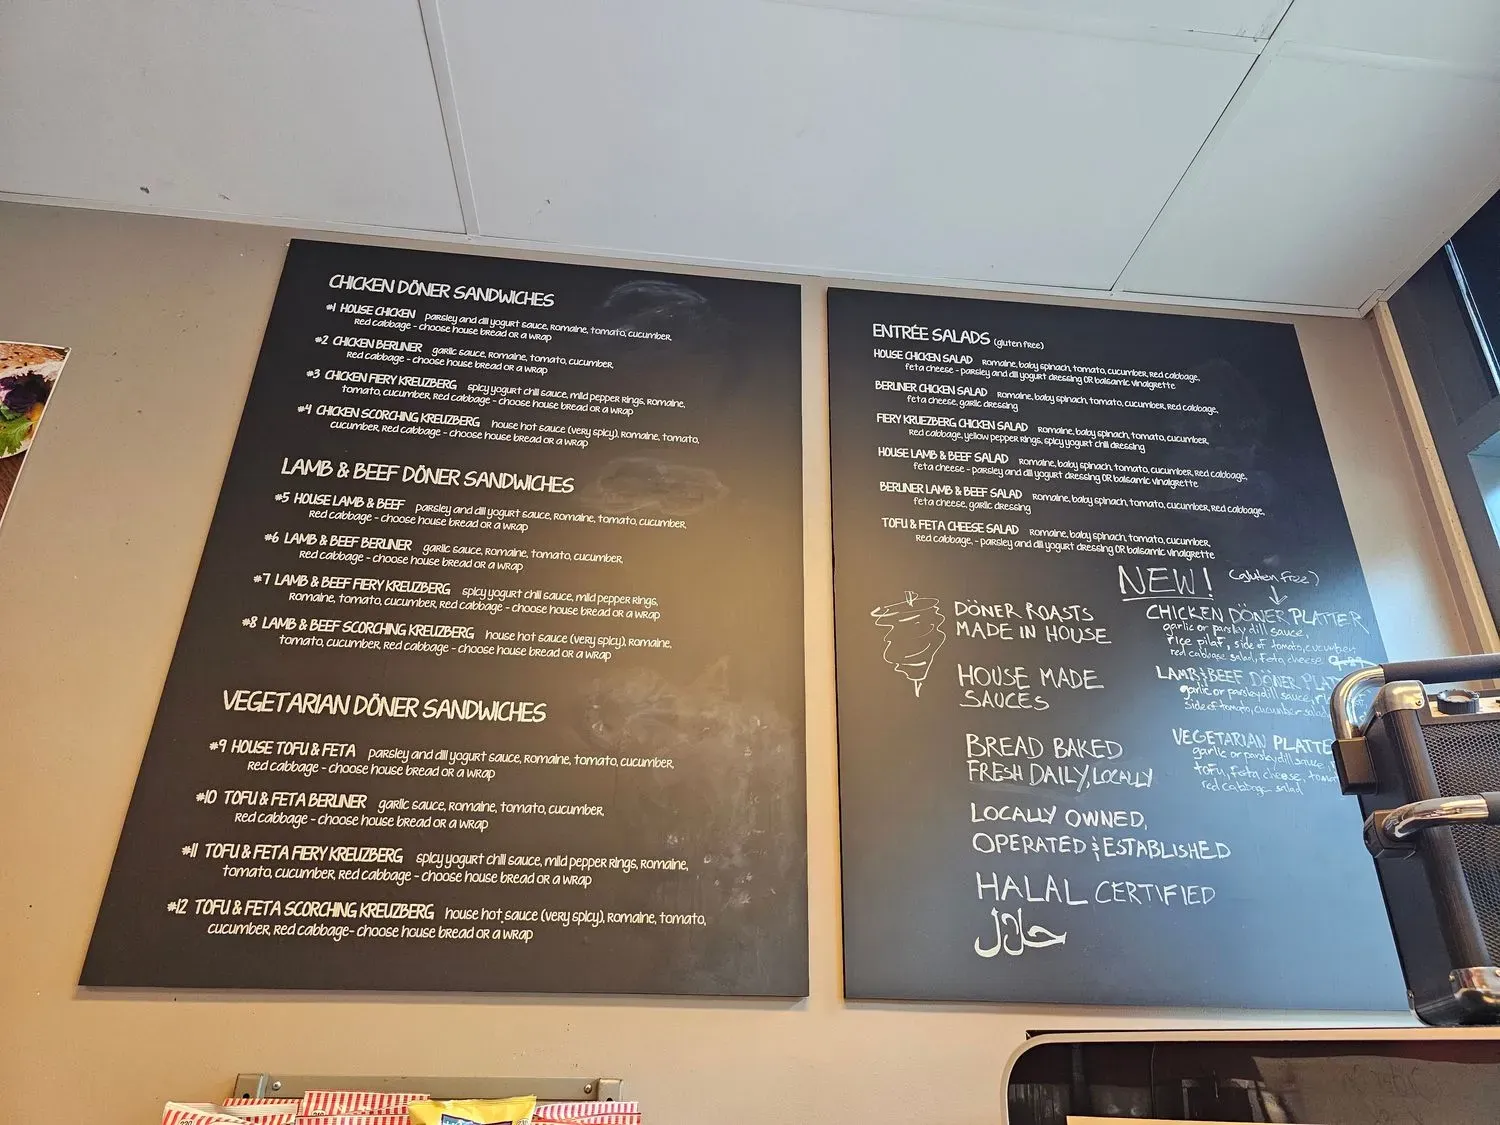 CHICKEN DÖNER SANDWICHES
#1 HOUSE CHICKEN parsley and dill yogurt sauce, Romaine, tomato, cucumber,
red cabbage - choose house bread or a wrap
#2 CHICKEN BERLINER garlic sauce, Romaine, tomato, cucumber,
red cabbage - choose house bread or a wrap
#3 CHICKEN FIERY KREUZBERG spicy yogurt chili sauce, mild pepper rings, Romaine,
tomato, cucumber, red cabbage - choose house bread or a wrap
#4 CHICKEN SCORCHING KREUZBERG house hot sauce (very spicy), Romaine, tomato,
cucumber, red cabbage - choose house bread or a wrap
LAMB & BEEF DÖNER SANDWICHES
#5 HOUSE LAMB & BEEF parsley and dill yogurt sauce, Romaine, tomato, cucumber,
red cabbage - choose house bread or a wrap
#6 LAMB & BEEF BERLINER garlic sauce, Romaine, tomato, cucumber,
red cabbage - choose house bread or a wrap
#7 LAMB & BEEF FIERY KREUZBERG spicy yogurt chili sauce, mild pepper rings,
Romaine, tomato, cucumber, red cabbage - choose house bread or a wrap
#8 LAMB & BEEF SCORCHING KREUZBERG house hot sauce (very spicy), Romaine,
tomato, cucumber, red cabbage - choose house bread or a wrap
VEGETARIAN DÖNER SANDWICHES
#9 HOUSE TOFU & FETA parsley and dill yogurt sauce, Romaine, tomato, cucumber,
red cabbage - choose house bread or a wrap
#10 TOFU & FETA BERLINER garlic sauce, Romaine, tomato, cucumber,
red cabbage - choose house bread or a wrap
#11 TOFU & FETA FIERY KREUZBERG spicy yogurt chili sauce, mild pepper rings, Romaine,
tomato, cucumber, red cabbage - choose house bread or a wrap
#12 TOFU & FETA SCORCHING KREUZBERG house hot sauce (very spicy), Romaine, tomato,
cucumber, red cabbage- choose house bread or a wrap
ENTRÉE SALADS (gluten free)
HOUSE CHICKEN SALAD Romaine, baby spinach, tomato, cucumber, red cabbage,
feta cheese - parsley and dill yogurt dressing OR balsamic vinaigrette
BERLINER CHICKEN SALAD Romaine, baby spinach, tomato, cucumber, red cabbage,
feta cheese, garlic dressing
FIERY KRUEZBERG CHICKEN SALAD Romaine, baby spinach, tomato, cucumber,
red cabbage, yellow pepper rings, spicy yogurt chili dressing
HOUSE LAMB & BEEF SALAD Romaine, baby spinach, tomato, cucumber, red cabbage,
feta cheese - parsley and dill yogurt dressing OR balsamic vinaigrette
BERLINER LAMB & BEEF SALAD Romaine, baby spinach, tomato, cucumber, red cabbage,
feta cheese, garlic dressing
TOFU & FETA CHEESE SALAD Romaine, baby spinach, tomato, cucumber,
red cabbage, - parsley and dill yogurt dressing OR balsamic vinaigrette
NEW! (gluten free)
DÖNER ROASTS
MADE IN HOUSE
HOUSE MADE
SAUCES
BREAD BAKED
FRESH DAILY, LOCALLY
LOCALLY OWNED,
OPERATED & ESTABLISHED
HALAL CERTIFIED
حلال
CHICKEN DÖNER PLATTER
garlic or parsley dill sauce,
rice pilaf, side of tomato, cucumber,
red cabbage salad, feta cheese
LAMB & BEEF DÖNER
garlic or parsley dill sauce,
side of tomato, cucumber salad
VEGETARIAN
garlic or parsley dill sauce,
tofu, feta cheese,
red cabbage salad